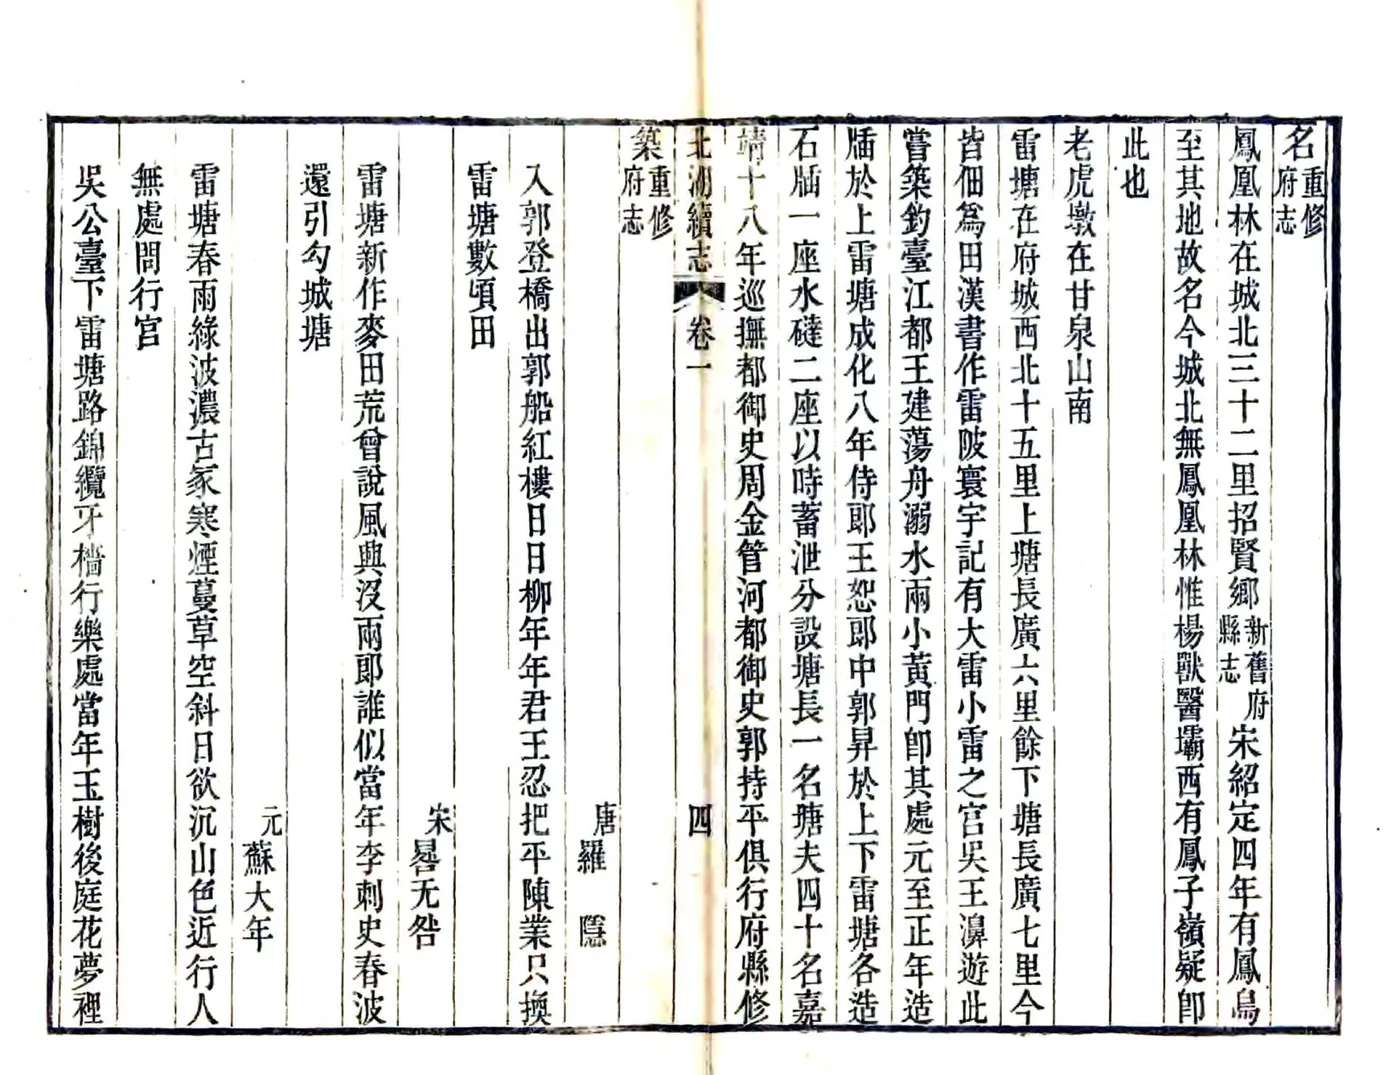 名重修府志
鳳凰林在城北三十二里招賢鄉新舊府縣志宋紹定四年有鳳鳥
至其地故名今城北無鳳凰林惟楊獸醫壩西有鳳子嶺疑卽
此也
老虎墩在甘泉山南
雷塘在府城西北十五里上塘長廣六里餘下塘長廣七里今
皆佃爲田漢書作雷陂寰宇記有大雷小雷之宮吳王濞遊此
嘗築釣臺江都王建蕩舟溺水兩小黃門卽其處元至正年造
牐於上雷塘成化八年侍郎王恕郎中郭昇於上下雷塘各造
石牐一座水䃮二座以時蓄泄分設塘長一名塘夫四十名嘉
靖十八年巡撫都御史周金管河都御史郭持平俱行府縣修
北湖續志 卷一 四
築重修府志
唐羅隱
入郭登橋出郭船紅樓日日柳年年君王忍把平陳業只換
雷塘數頃田
宋晷无咎
雷塘新作麥田荒曾說風興沒兩郎誰似當年李刺史春波
還引勾城塘
元蘇大年
雷塘春雨綠波濃古冢寒煙蔓草空斜日欲沉山色近行人
無處問行宮
吳公臺下雷塘路錦纜牙檣行樂處當年玉樹後庭花夢裡